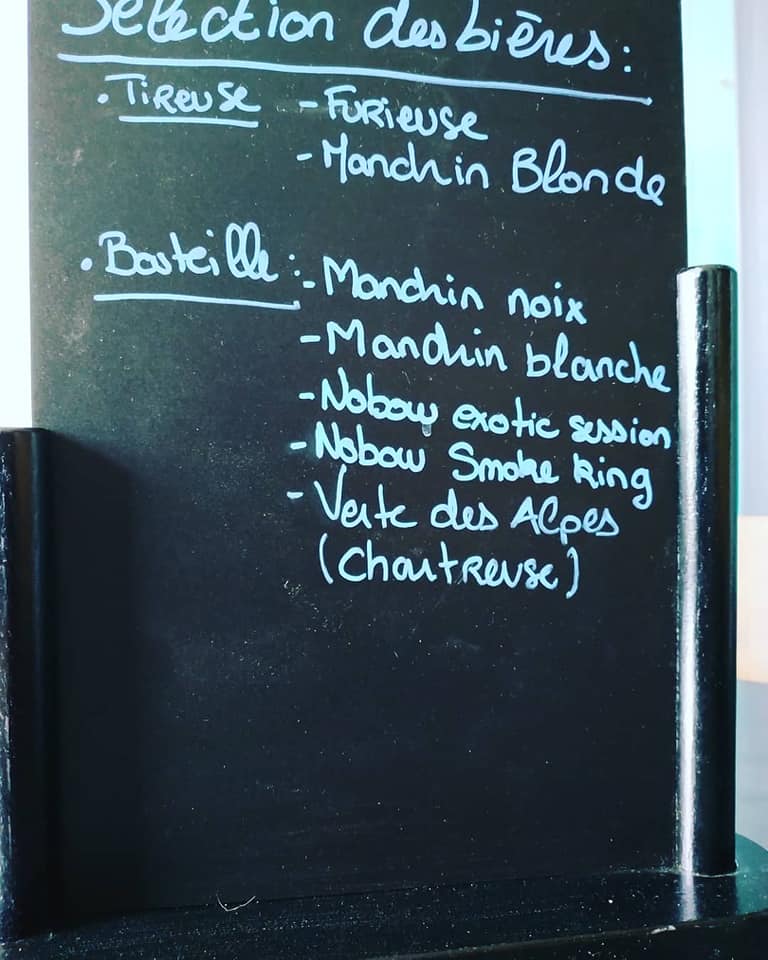 Sélection des bières :
• Tireuse - Furieuse
- Mandrin Blonde
• Bouteille : - Mandrin noix
- Mandrin blanche
- Nobow exotic session
- Nobow Smoke King
- Verte des Alpes
(Chartreuse)